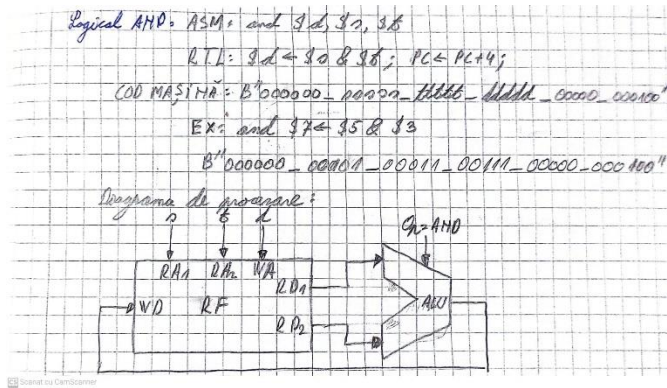 Logical AND: ASM: and $d, $s, $t
RTL: $d ← $s & $t; PC ← PC+4;
COD MAȘINĂ: B"000000_sssss_ttttt_ddddd_00000_000100"
EX: and $7 ← $5 & $3
B"000000_00101_00011_00111_00000_000100"
Diagrama de procesare:
s t d
Op=AND
RA1 RA2 WA
RD1
WD RF ALU
RD2
CS Scanat cu CamScanner